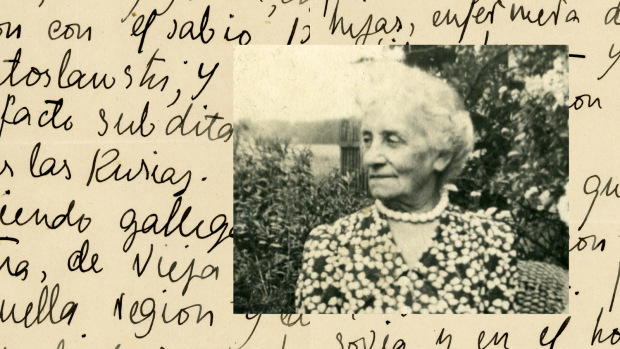 con el sabio hijas, enfermera d
toslawski, y y
facto subdita on
s las Rusias.
iendo gallega qu
ra, de Vieja on
uella region y
sovia y en el ho